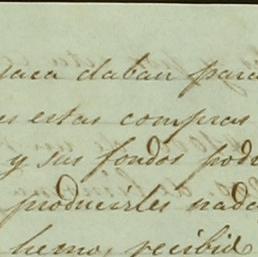 daban para
estas compras
y sus fondos
producirles nada
hemos recibid